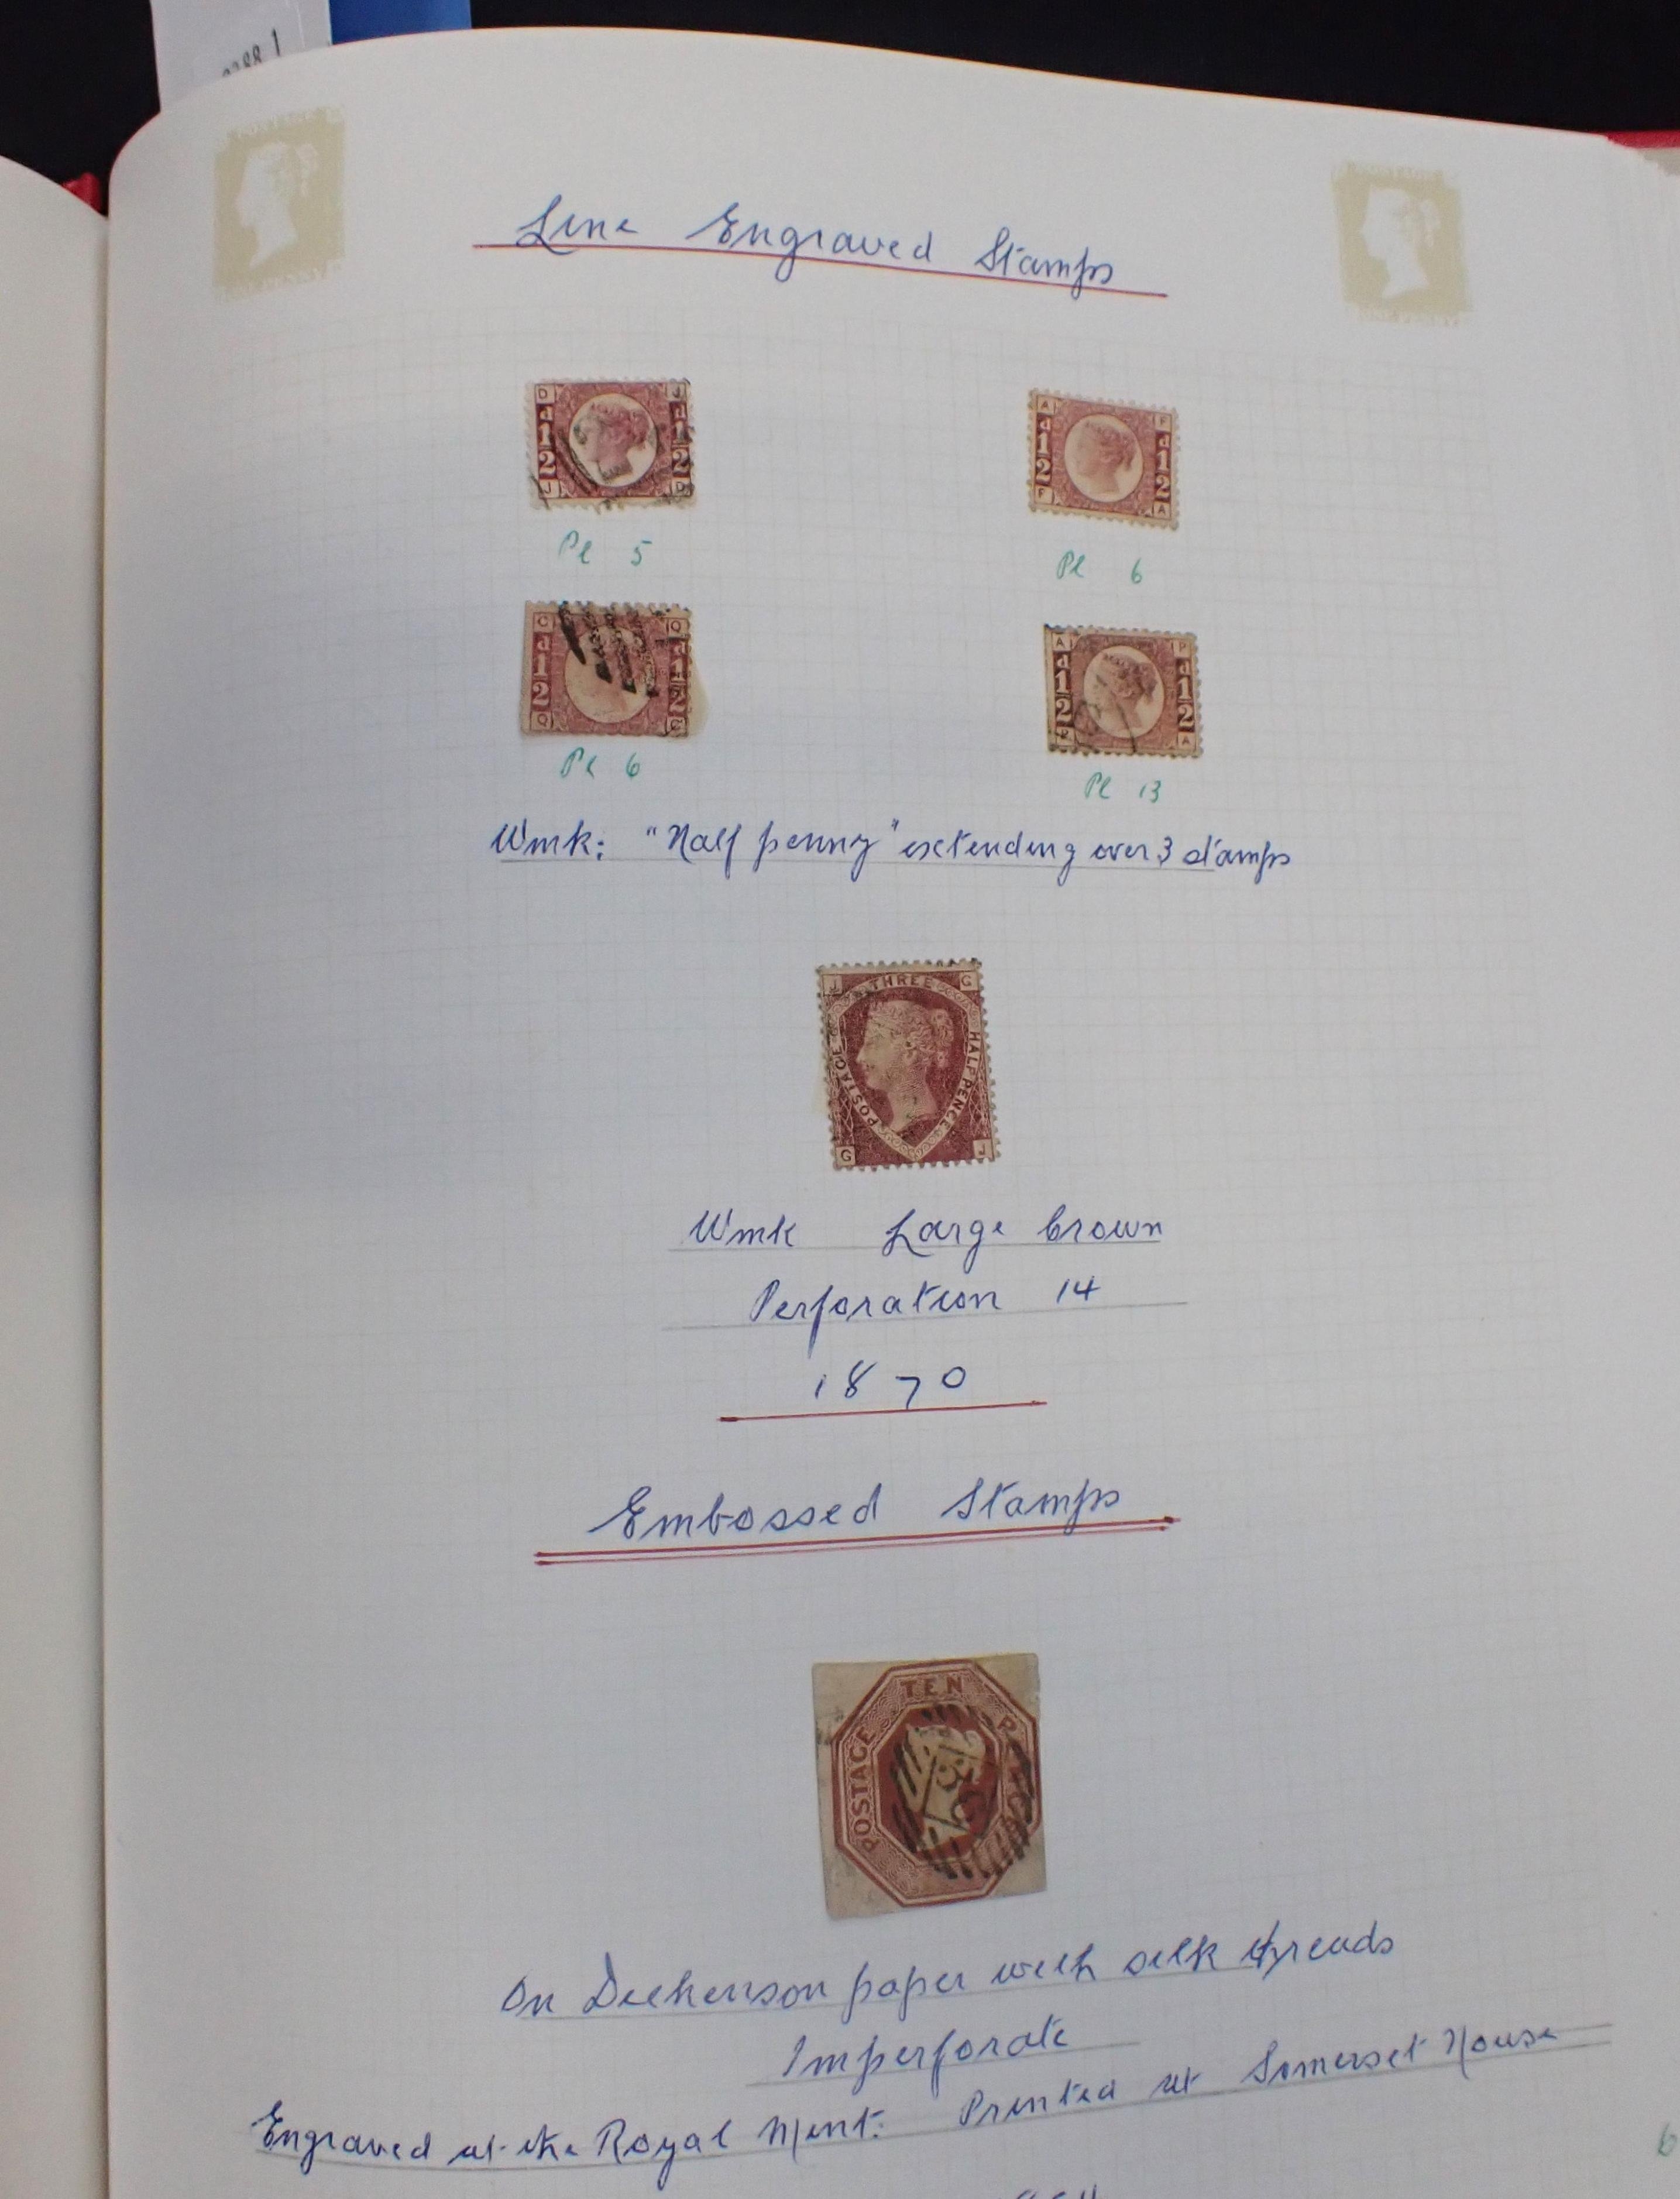 Line Engraved Stamps
D J
d d
1 1
2 2
J D
Pl 5
A F
d d
1 1
2 2
F A
Pl 6
C Q
d d
1 1
2 2
Q C
Pl 6
A P
d d
1 1
2 2
P A
Pl 13
Wmk: "Half penny" extending over 3 stamps
J THREE G
POSTAGE HALFPENCE
G J
Wmk Large Crown
Perforation 14
1870
Embossed Stamps
TEN
POSTAGE
On Dickenson paper with silk threads
Imperforate
Engraved at the Royal Mint. Printed at Somerset House
6